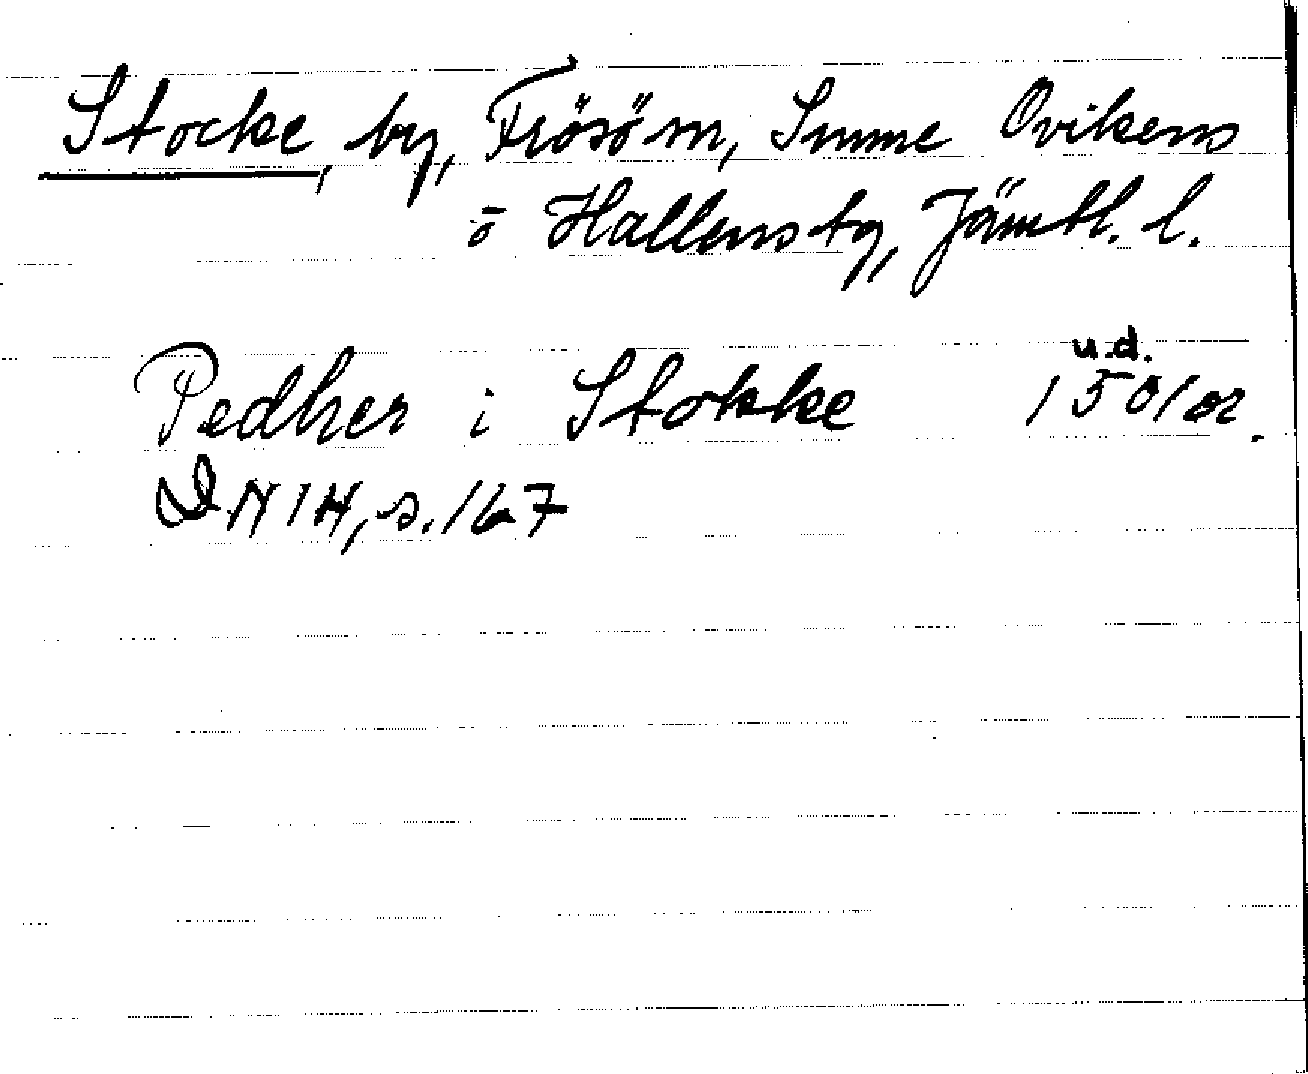 Stocke, by, Frösö sn, Sunne Ovikens
o Hallens tg, Jämtl. l.
u.d.
Pedher i Stokke 1501 or.
DN 14, s. 167